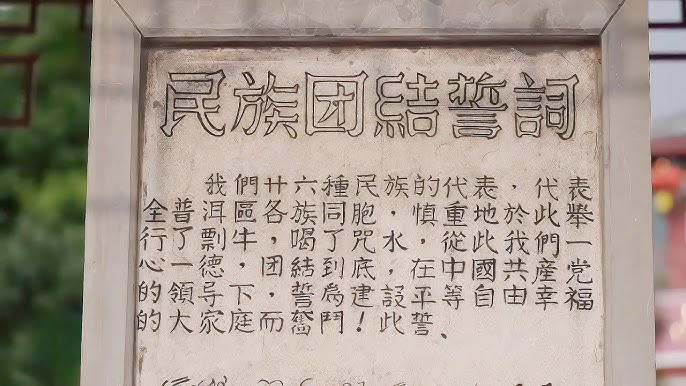 民族团結誓詞
我們廿六種民族的代表,代表
全普洱區各族同胞,慎重地於此舉
行了剽牛,喝了咒水,從此我們一
心一德,团結到底,在中國共產党
的領导下,誓為建設平等自由幸福
的大家庭而奮鬥!此誓、